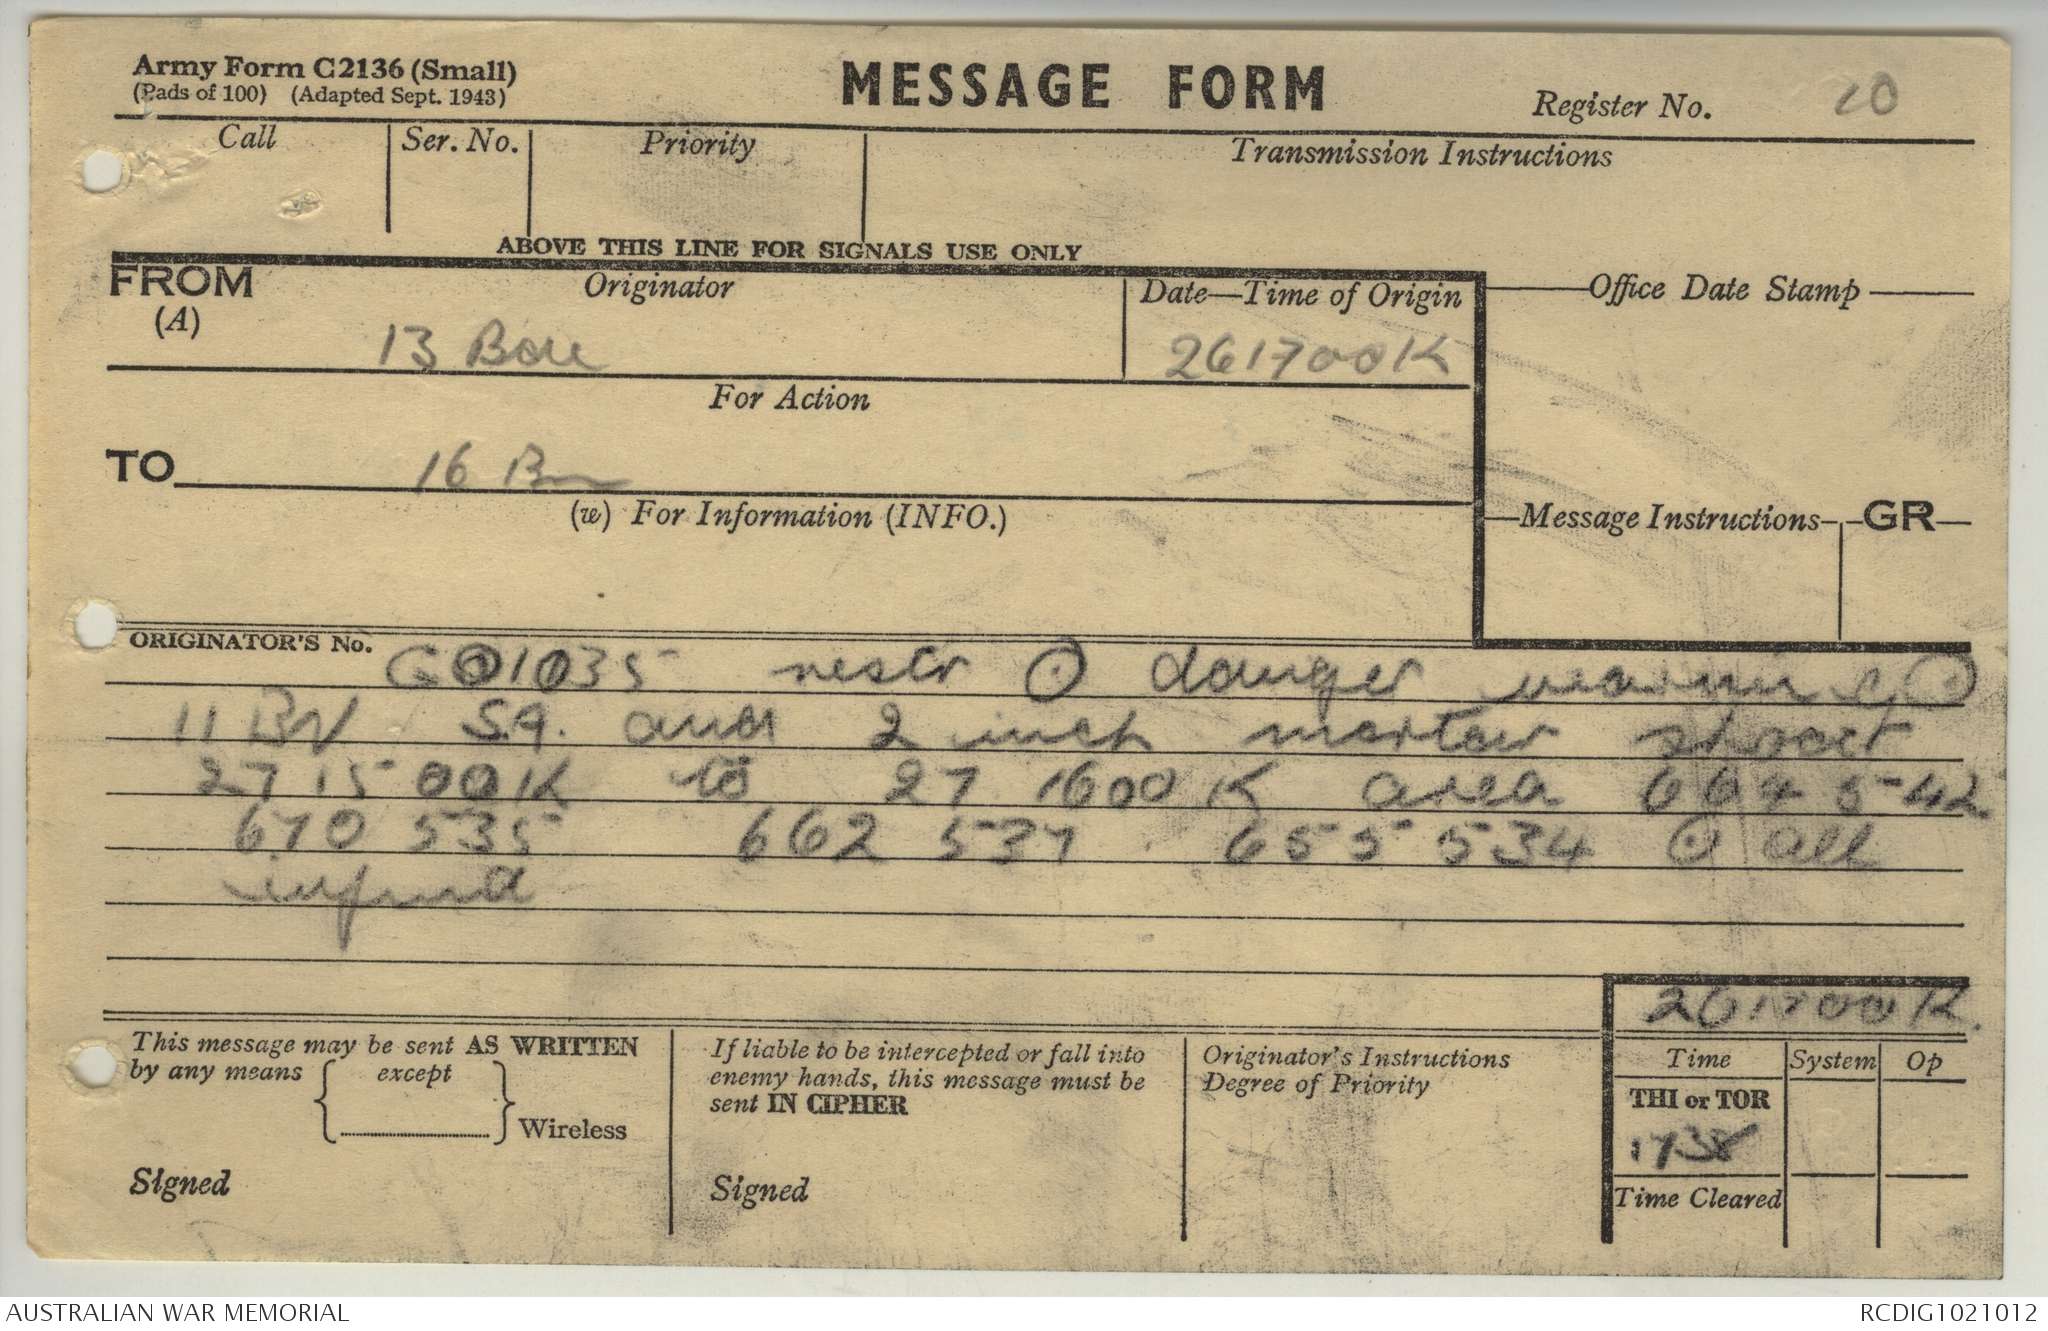 Army Form C2136 (Small)
(Pads of 100) (Adapted Sept. 1943)
MESSAGE FORM
Register No. 20
Call
Ser. No.
Priority
Transmission Instructions
ABOVE THIS LINE FOR SIGNALS USE ONLY
FROM
(A)
Originator
Date—Time of Origin
Office Date Stamp
13
261700K
For Action
TO
16 Bn
(w) For Information (INFO.)
Message Instructions
GR
ORIGINATOR'S No.
1035 restr ⊙ danger warning ⊙
11 BN S.A. and 2 inch mortar shoot
27 1500K to 27 1600K area 664 542
670 535 662 537 655 534 ⊙ all
infmd
261700K.
This message may be sent AS WRITTEN
by any means except
Wireless
Signed
If liable to be intercepted or fall into
enemy hands, this message must be
sent IN CIPHER
Signed
Originator's Instructions
Degree of Priority
Time
System
Op
THI or TOR
1738
Time Cleared
AUSTRALIAN WAR MEMORIAL
RCDIG1021012